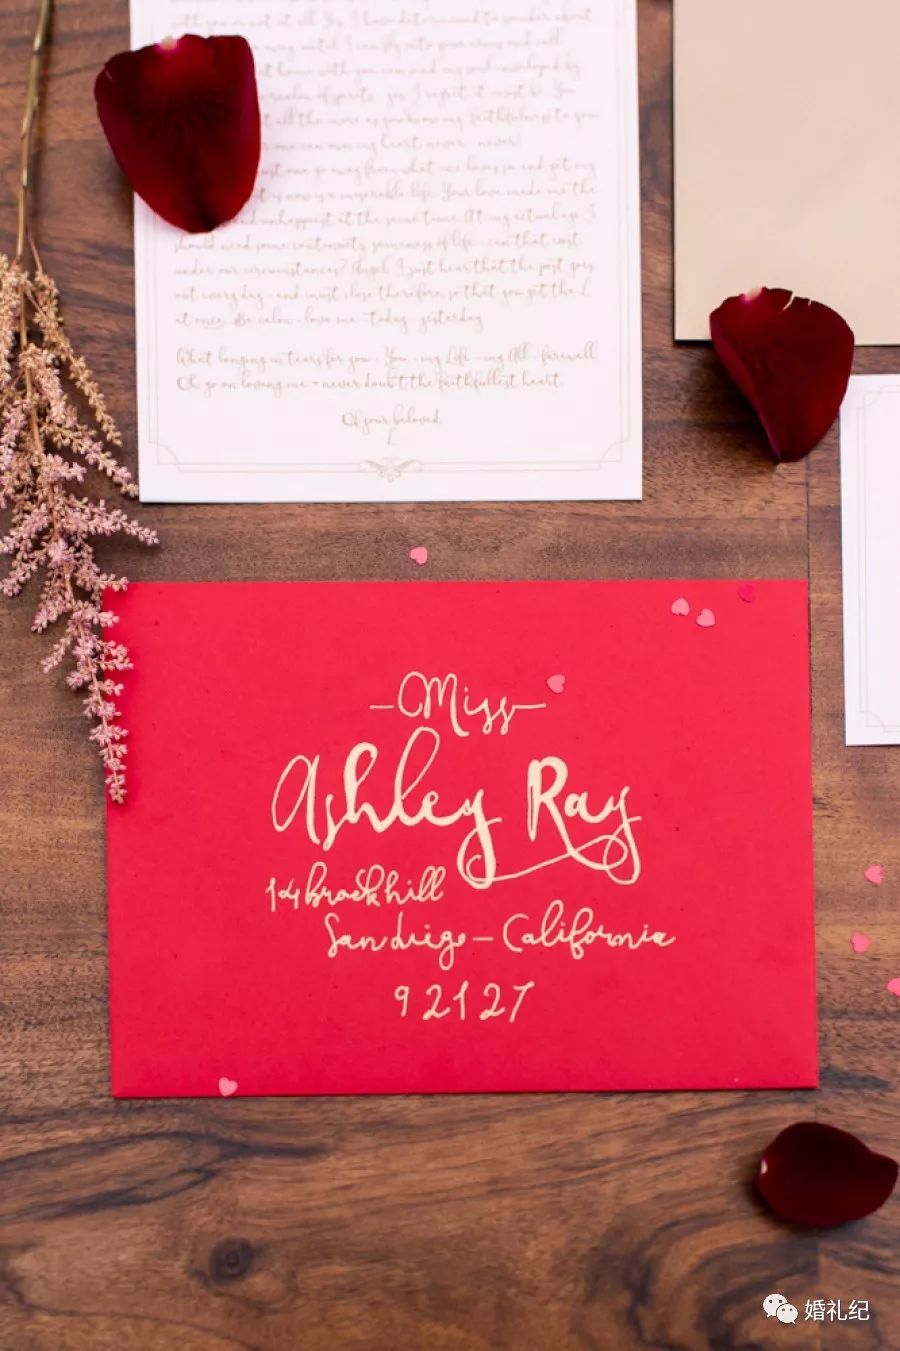 with you or not at all. Yes, I have determined to wander about
away until I can fly into your arms and call
at home with you can send my soul enveloped by
realm of spirits - yes I regret, it must be. You
all the more as you know my faithfulness to you
one can own my heart never - never!
one go away from what one loves so and yet my
as it is now is a miserable life. Your love made me the
and unhappiest at the same time. At my actual age I
should need some continuity, sameness of life - can that exist
under our circumstances? Angel, I just hear that the post goes
out every day - and must close therefore, so that you get the L.
at once. Be calm - love me - today - yesterday.
What longing in tears for you - You - my Life - my All - farewell.
Oh, go on loving me - never doubt the faithfullest heart
Of your beloved
L
-Miss-
Ashley Ray
14 brookhill
San diego - California
92127
婚礼纪